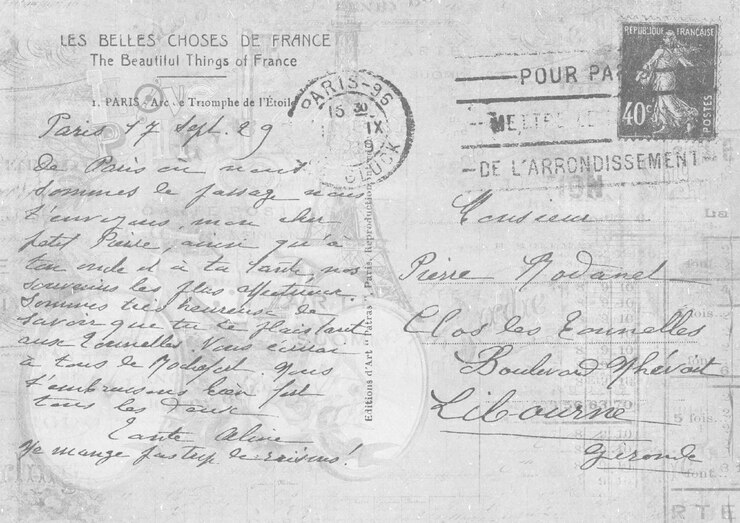 LES BELLES CHOSES DE FRANCE
The Beautiful Things of France
1. PARIS - Arc de Triomphe de l'Étoile
Paris 17 Sept. 29
De Paris où nous
sommes de passage nous
t'envoyons, mon cher
petit Pierre, ainsi qu'à
ton oncle et à ta tante, nos
souvenirs les plus affectueux.
Sommes très heureuse de
savoir que tu te plais tant
aux Tonnelles. Vous
à tous de Nous
t'embrassons bien fort
tous les deux
Tante Aline
Ne mange pas trop de raisins!
Editions d'Art "Patras" Paris. Reproduction
PARIS-96
15 30
IX
GLUCK
POUR PA
METTRE LE
DE L'ARRONDISSEMENT
REPUBLIQUE FRANÇAISE
40c
POSTES
Monsieur
Pierre
Clos les Tonnelles
Boulevard
Libourne
Gironde
La
5 fois.
RTE